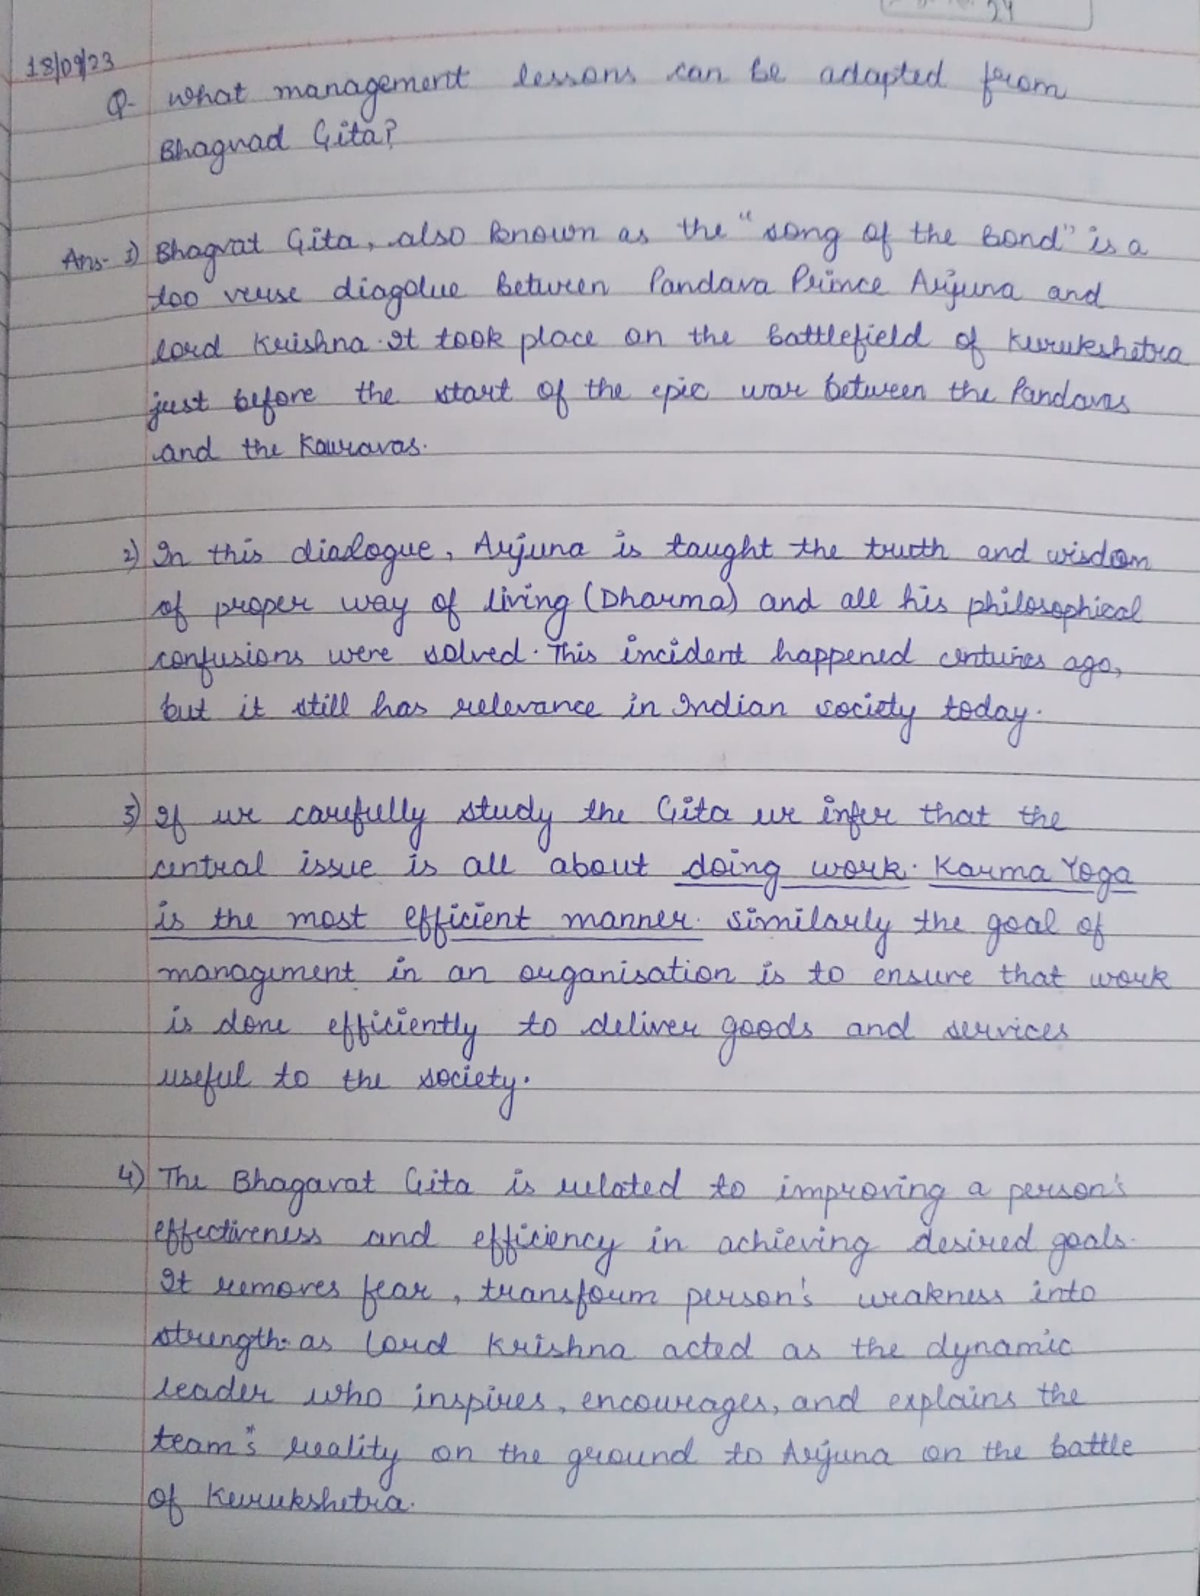 24
18/09/23
Q- what management lessons can be adapted from
Bhagvad Gita?
Ans- 1) Bhagvat Gita, also known as the "song of the bond" is a
too verse diagolue between Pandava Prince Arjuna and
lord Krishna. It took place on the battlefield of Kurukshetra
just before the start of the epic war between the Pandavas
and the Kauravas.
2) In this dialogue, Arjuna is taught the truth and wisdom
of proper way of living (Dharma) and all his philosophical
confusions were solved. This incident happened centuries ago,
but it still has relevance in Indian society today.
3) If we carefully study the Gita we infer that the
central issue is all about doing work. Karma Yoga
is the most efficient manner. similarly the goal of
management in an organisation is to ensure that work
is done efficiently to deliver goods and services
useful to the society.
4) The Bhagavat Gita is related to improving a person's
effectiveness and efficiency in achieving desired goals.
It removes fear, transform person's weakness into
strength. as lord Krishna acted as the dynamic
leader who inspires, encourages, and explains the
team's reality on the ground to Arjuna on the battle
of Kurukshetra.